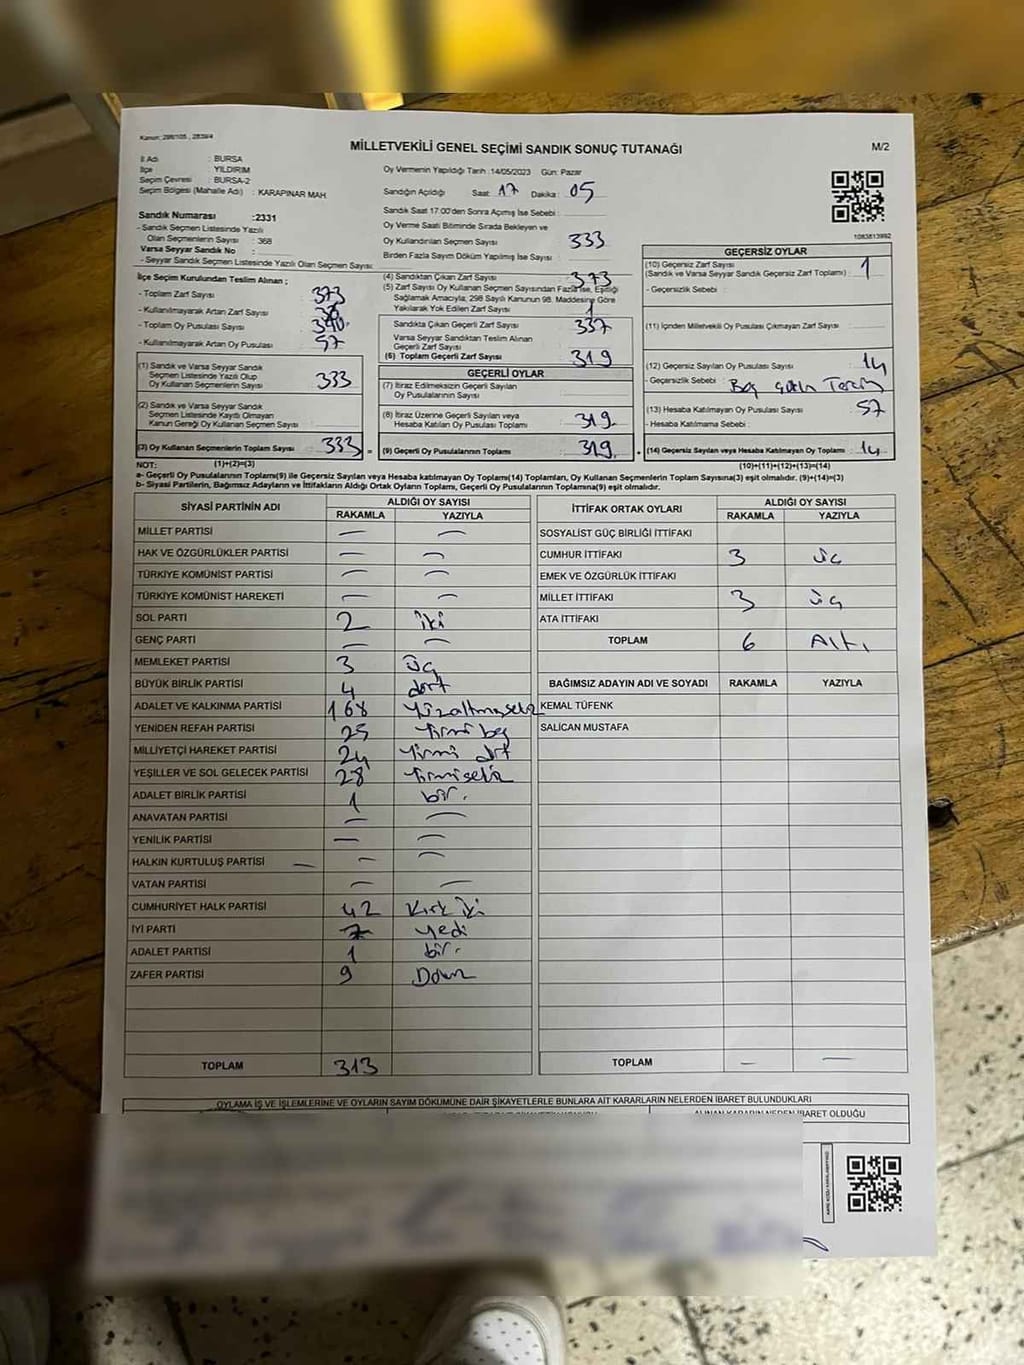 Kanun: 298/105 , 2839/4
MİLLETVEKİLİ GENEL SEÇİMİ SANDIK SONUÇ TUTANAĞI
M/2
İl Adı : BURSA
İlçe : YILDIRIM
Seçim Çevresi : BURSA-2
Seçim Bölgesi (Mahalle Adı) : KARAPINAR MAH
Sandık Numarası :2331
- Sandık Seçmen Listesinde Yazılı
Olan Seçmenlerin Sayısı : 368
Varsa Seyyar Sandık No :
- Seyyar Sandık Seçmen Listesinde Yazılı Olan Seçmen Sayısı:
Oy Vermenin Yapıldığı Tarih :14/05/2023 Gün: Pazar
Sandığın Açıldığı Saat: 17 Dakika: 05
Sandık Saat 17.00'den Sonra Açımış İse Sebebi :
Oy Verme Saati Bitiminde Sırada Bekleyen ve
Oy Kullandırılan Seçmen Sayısı 333
Birden Fazla Sayım Döküm Yapılmış İse Sayısı :
1083813992
İlçe Seçim Kurulundan Teslim Alınan ;
- Toplam Zarf Sayısı 373
- Kullanılmayarak Artan Zarf Sayısı
- Toplam Oy Pusulası Sayısı 390
- Kullanılmayarak Artan Oy Pusulası 57
(1) Sandık ve Varsa Seyyar Sandık
Seçmen Listesinde Yazılı Olup
Oy Kullanan Seçmenlerin Sayısı 333
(2) Sandık ve Varsa Seyyar Sandık
Seçmen Listesinde Kayıtlı Olmayan
Kanun Gereği Oy Kullanan Seçmen Sayısı :
(3) Oy Kullanan Seçmenlerin Toplam Sayısı 333 =
(4) Sandıktan Çıkan Zarf Sayısı 373
(5) Zarf Sayısı Oy Kullanan Seçmen Sayısından Fazla İse, Eşitliği
Sağlamak Amacıyla, 298 Sayılı Kanunun 98. Maddesine Göre
Yakılarak Yok Edilen Zarf Sayısı 1
Sandıkta Çıkan Geçerli Zarf Sayısı 337
Varsa Seyyar Sandıktan Teslim Alınan
Geçerli Zarf Sayısı
(6) Toplam Geçerli Zarf Sayısı 319
GEÇERLİ OYLAR
(7) İtiraz Edilmeksizin Geçerli Sayılan
Oy Pusulalarının Sayısı
(8) İtiraz Üzerine Geçerli Sayılan veya
Hesaba Katılan Oy Pusulası Toplamı 319
(9) Geçerli Oy Pusulalarının Toplamı 319 +
GEÇERSİZ OYLAR
(10) Geçersiz Zarf Sayısı
(Sandık ve Varsa Seyyar Sandık Geçersiz Zarf Toplamı) : 1
- Geçersizlik Sebebi :
(11) İçinden Milletvekili Oy Pusulası Çıkmayan Zarf Sayısı
(12) Geçersiz Sayılan Oy Pusulası Sayısı 14
- Geçersizlik Sebebi : Boş
(13) Hesaba Katılmayan Oy Pusulası Sayısı 57
- Hesaba Katılmama Sebebi :
(14) Geçersiz Sayılan veya Hesaba Katılmayan Oy Toplamı : 14
NOT: (1)+(2)=(3) (10)+(11)+(12)+(13)=(14)
a- Geçerli Oy Pusulalarının Toplamı(9) ile Geçersiz Sayılan veya Hesaba katılmayan Oy Toplamı(14) Toplamları, Oy Kullanan Seçmenlerin Toplam Sayısına(3) eşit olmalıdır. (9)+(14)=(3)
b- Siyasi Partilerin, Bağımsız Adayların ve İttifakların Aldığı Ortak Oyların Toplamı, Geçerli Oy Pusulalarının Toplamına(9) eşit olmalıdır.
SİYASİ PARTİNİN ADI ALDIĞI OY SAYISI
RAKAMLA YAZIYLA
MİLLET PARTİSİ — —
HAK VE ÖZGÜRLÜKLER PARTİSİ — —
TÜRKİYE KOMÜNİST PARTİSİ — —
TÜRKİYE KOMÜNİST HAREKETİ — —
SOL PARTİ 2 iki
GENÇ PARTİ — —
MEMLEKET PARTİSİ 3 üç
BÜYÜK BİRLİK PARTİSİ 4 dört
ADALET VE KALKINMA PARTİSİ 168 Yüzaltmışsekiz
YENİDEN REFAH PARTİSİ 25 Yirmi beş
MİLLİYETÇİ HAREKET PARTİSİ 24 Yirmi dört
YEŞİLLER VE SOL GELECEK PARTİSİ 28 Yirmisekiz
ADALET BİRLİK PARTİSİ 1 bir.
ANAVATAN PARTİSİ — —
YENİLİK PARTİSİ — —
HALKIN KURTULUŞ PARTİSİ — — —
VATAN PARTİSİ — —
CUMHURİYET HALK PARTİSİ 42 Kırk iki
İYİ PARTİ 7 yedi
ADALET PARTİSİ 1 bir.
ZAFER PARTİSİ 9 Dokuz
TOPLAM 313
İTTİFAK ORTAK OYLARI ALDIĞI OY SAYISI
RAKAMLA YAZIYLA
SOSYALİST GÜÇ BİRLİĞİ İTTİFAKI
CUMHUR İTTİFAKI 3 üç
EMEK VE ÖZGÜRLÜK İTTİFAKI
MİLLET İTTİFAKI 3 üç
ATA İTTİFAKI
TOPLAM 6 Altı
BAĞIMSIZ ADAYIN ADI VE SOYADI RAKAMLA YAZIYLA
KEMAL TÜFENK
SALİCAN MUSTAFA
TOPLAM — —
OYLAMA İŞ VE İŞLEMLERİNE VE OYLARIN SAYIM DÖKÜMÜNE DAİR ŞİKAYETLERLE BUNLARA AİT KARARLARIN NELERDEN İBARET BULUNDUKLARI
ALINAN KARARIN NEDEN İBARET OLDUĞU